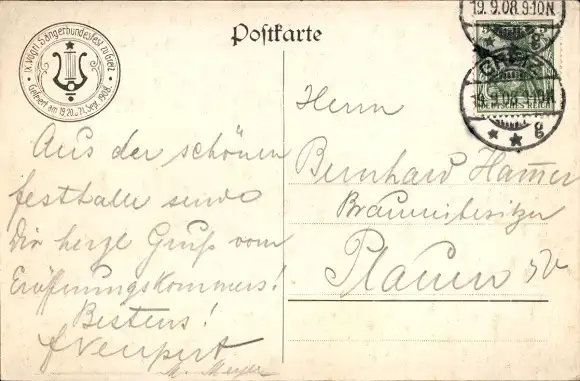 IX. Vogtl. Sängerbundesfest zu Greiz
Gefeiert am 19. 20. u. 21. Sept. 1908.
Postkarte
19.9.08.9-10N.
GREIZ
g
DEUTSCHES REICH
Aus der schönen
festhalle sende
Dir herzl Gruß vom
Eröffnungskommers!
Bestens!
M. Meyer
Herrn
Bernhard Hammer
Brauereibesitzer
Plauen